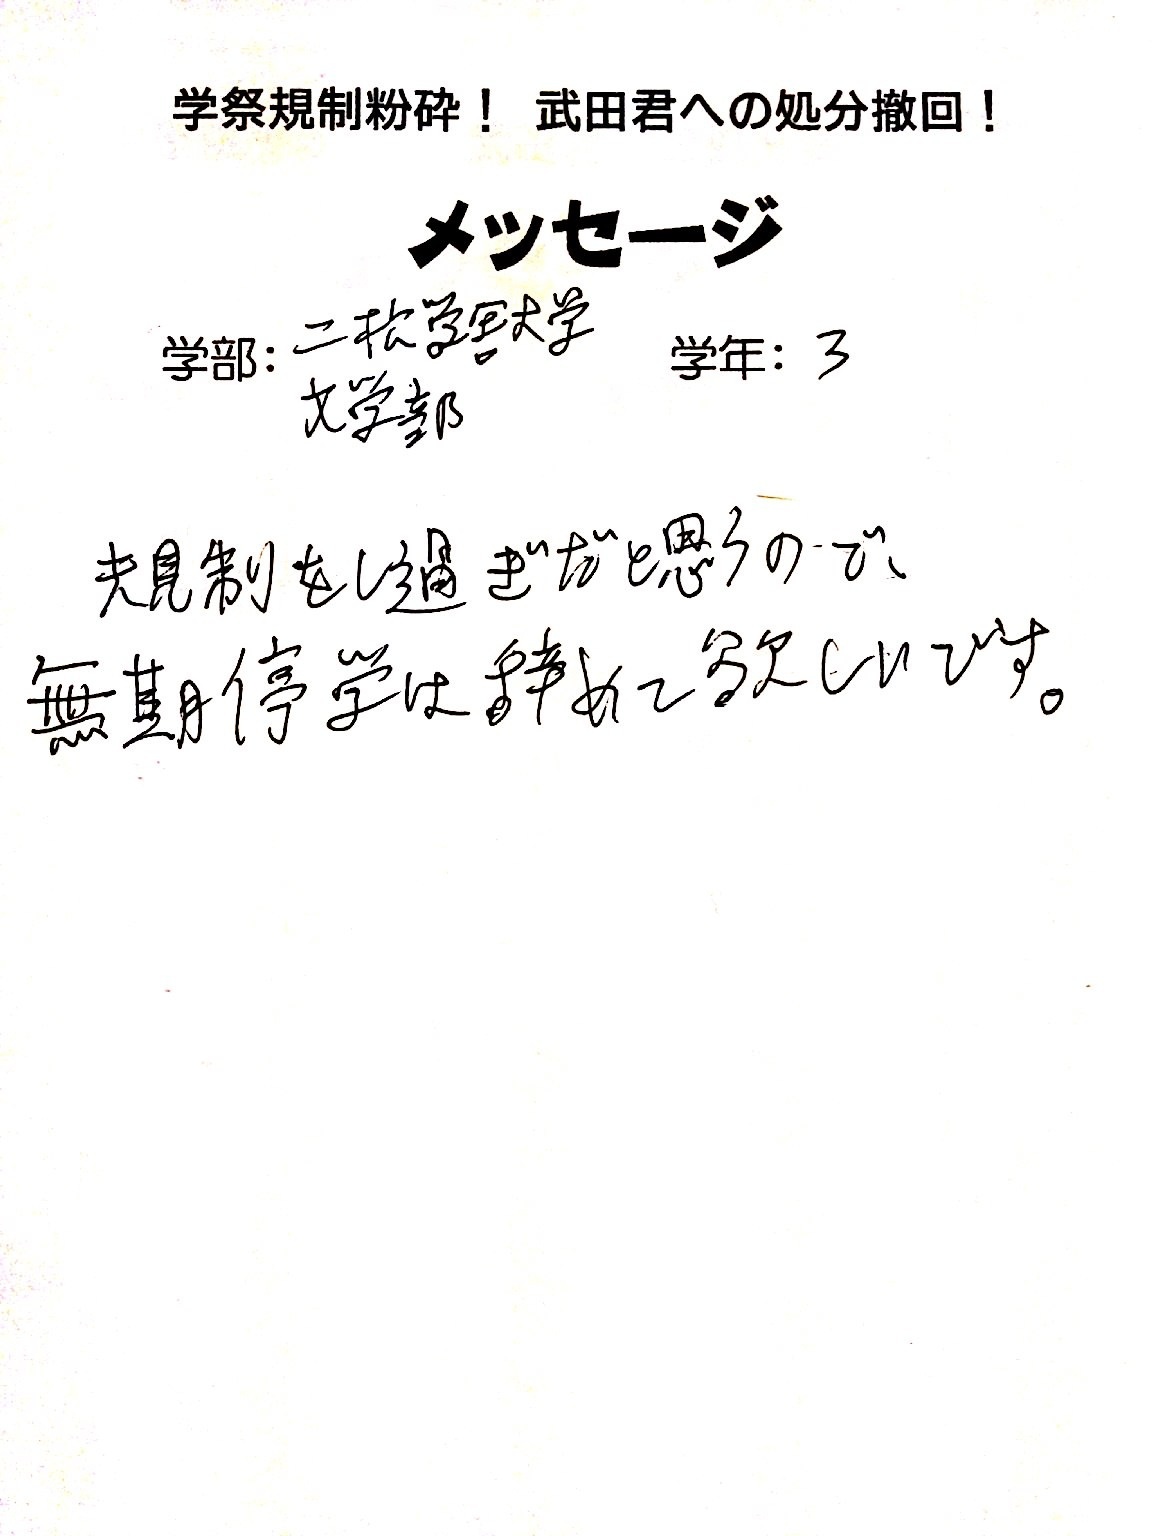 学祭規制粉砕！ 武田君への処分撤回！
メッセージ
学部：二松学舎大学 学年：3
文学部
規制をし過ぎだと思うので、
無期停学は辞めて欲しいです。